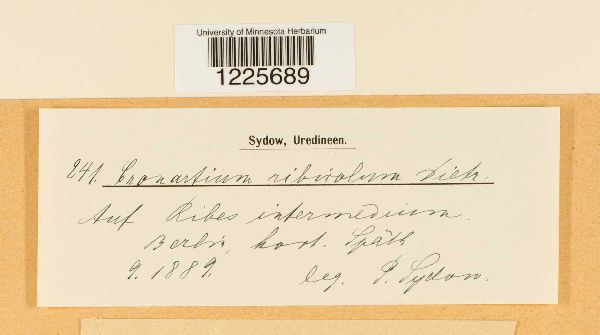 University of Minnesota Herbarium
1225689
Sydow, Uredineen.
241. Cronartium ribicolum Dietr.
Auf Ribes intermedium.
Berlin, hort. Späth
9. 1889. leg. P. Sydow.